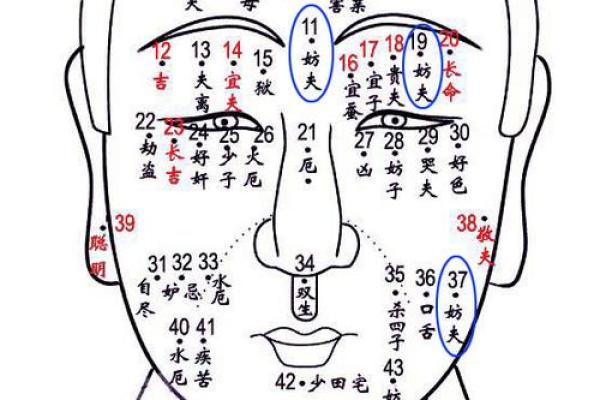 害亲
11 妨夫
12 吉
13 夫离
14 宜夫
15 狱
16 宜蚕
17 宜子
18 贵夫
19 妨夫
20 长命
21 厄
22 劫盗
23 长吉
24 好奸
25 少子
26 火厄
27 凶
28 妨子
29 哭夫
30 好色
39 聪明
38 敬夫
31 自尽
32 妒忌
33 水厄
34 双生
35 杀四子
36 口舌
37 妨夫
40 水厄
41 疾苦
42 少田宅
43 妨